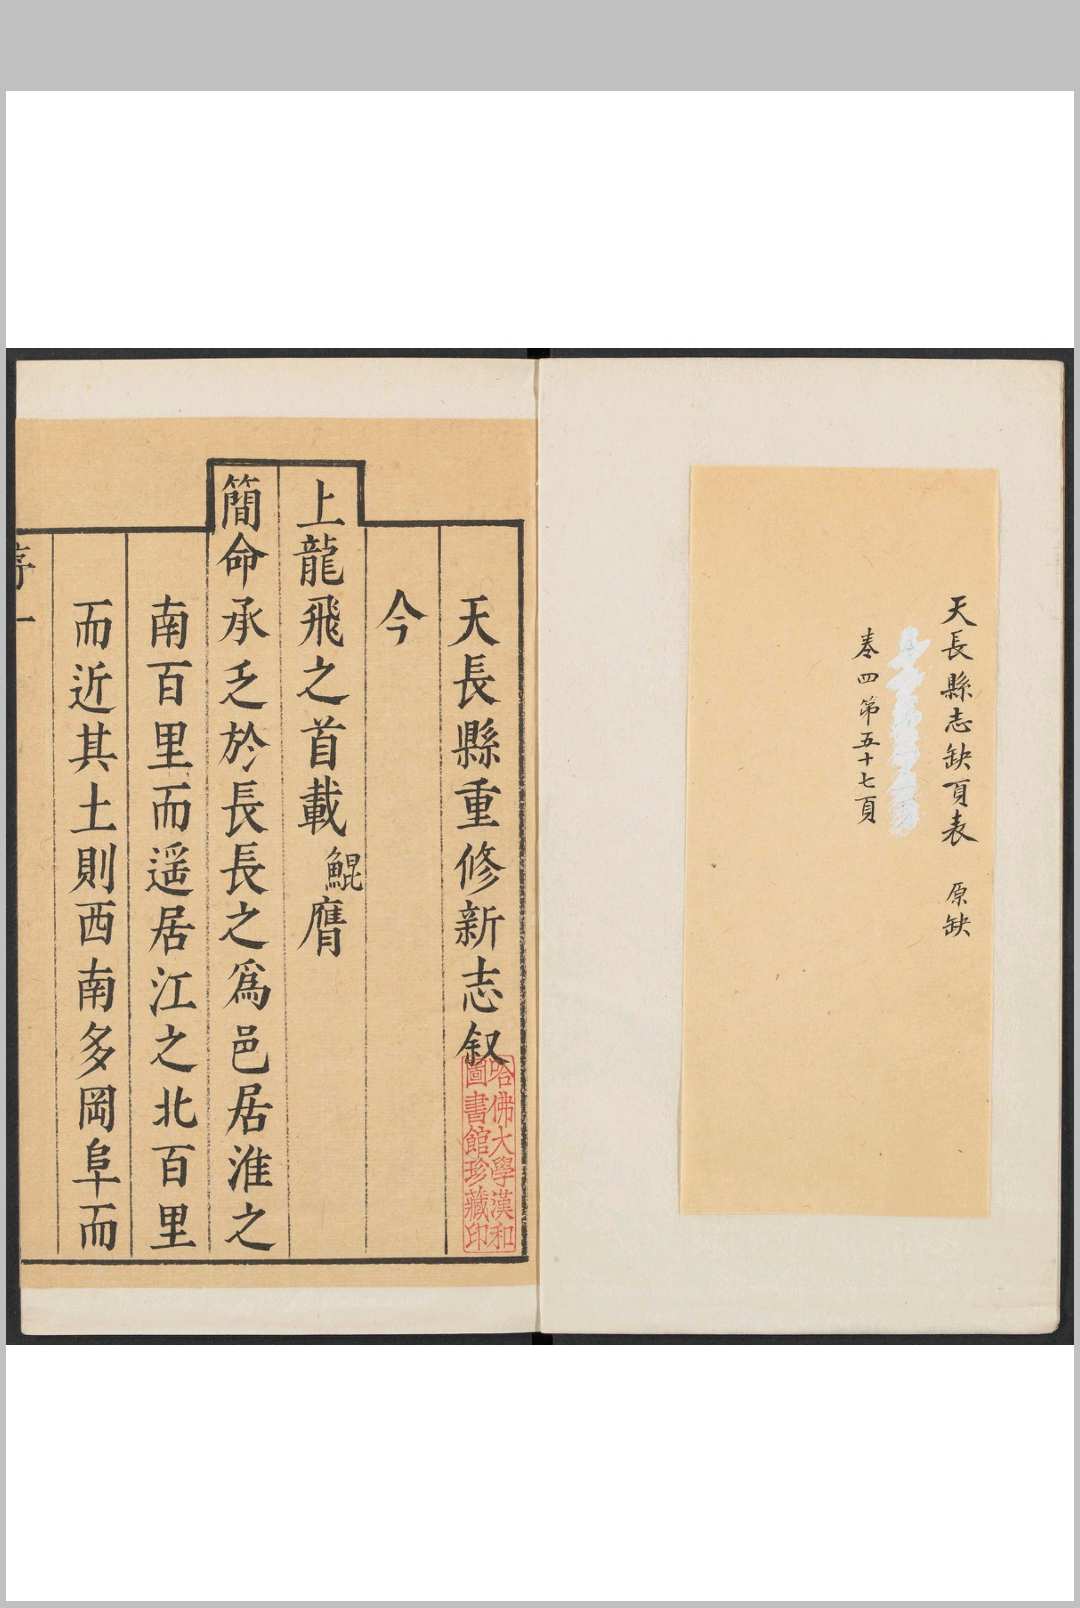 天長縣志缺頁表 原缺
卷四第五十七頁
天長縣重修新志叙
哈佛大學漢和
圖書館珍藏印
今
上龍飛之首載鯤膺
簡命承乏於長長之爲邑居淮之
南百里而遥居江之北百里
而近其土則西南多岡阜而
序一